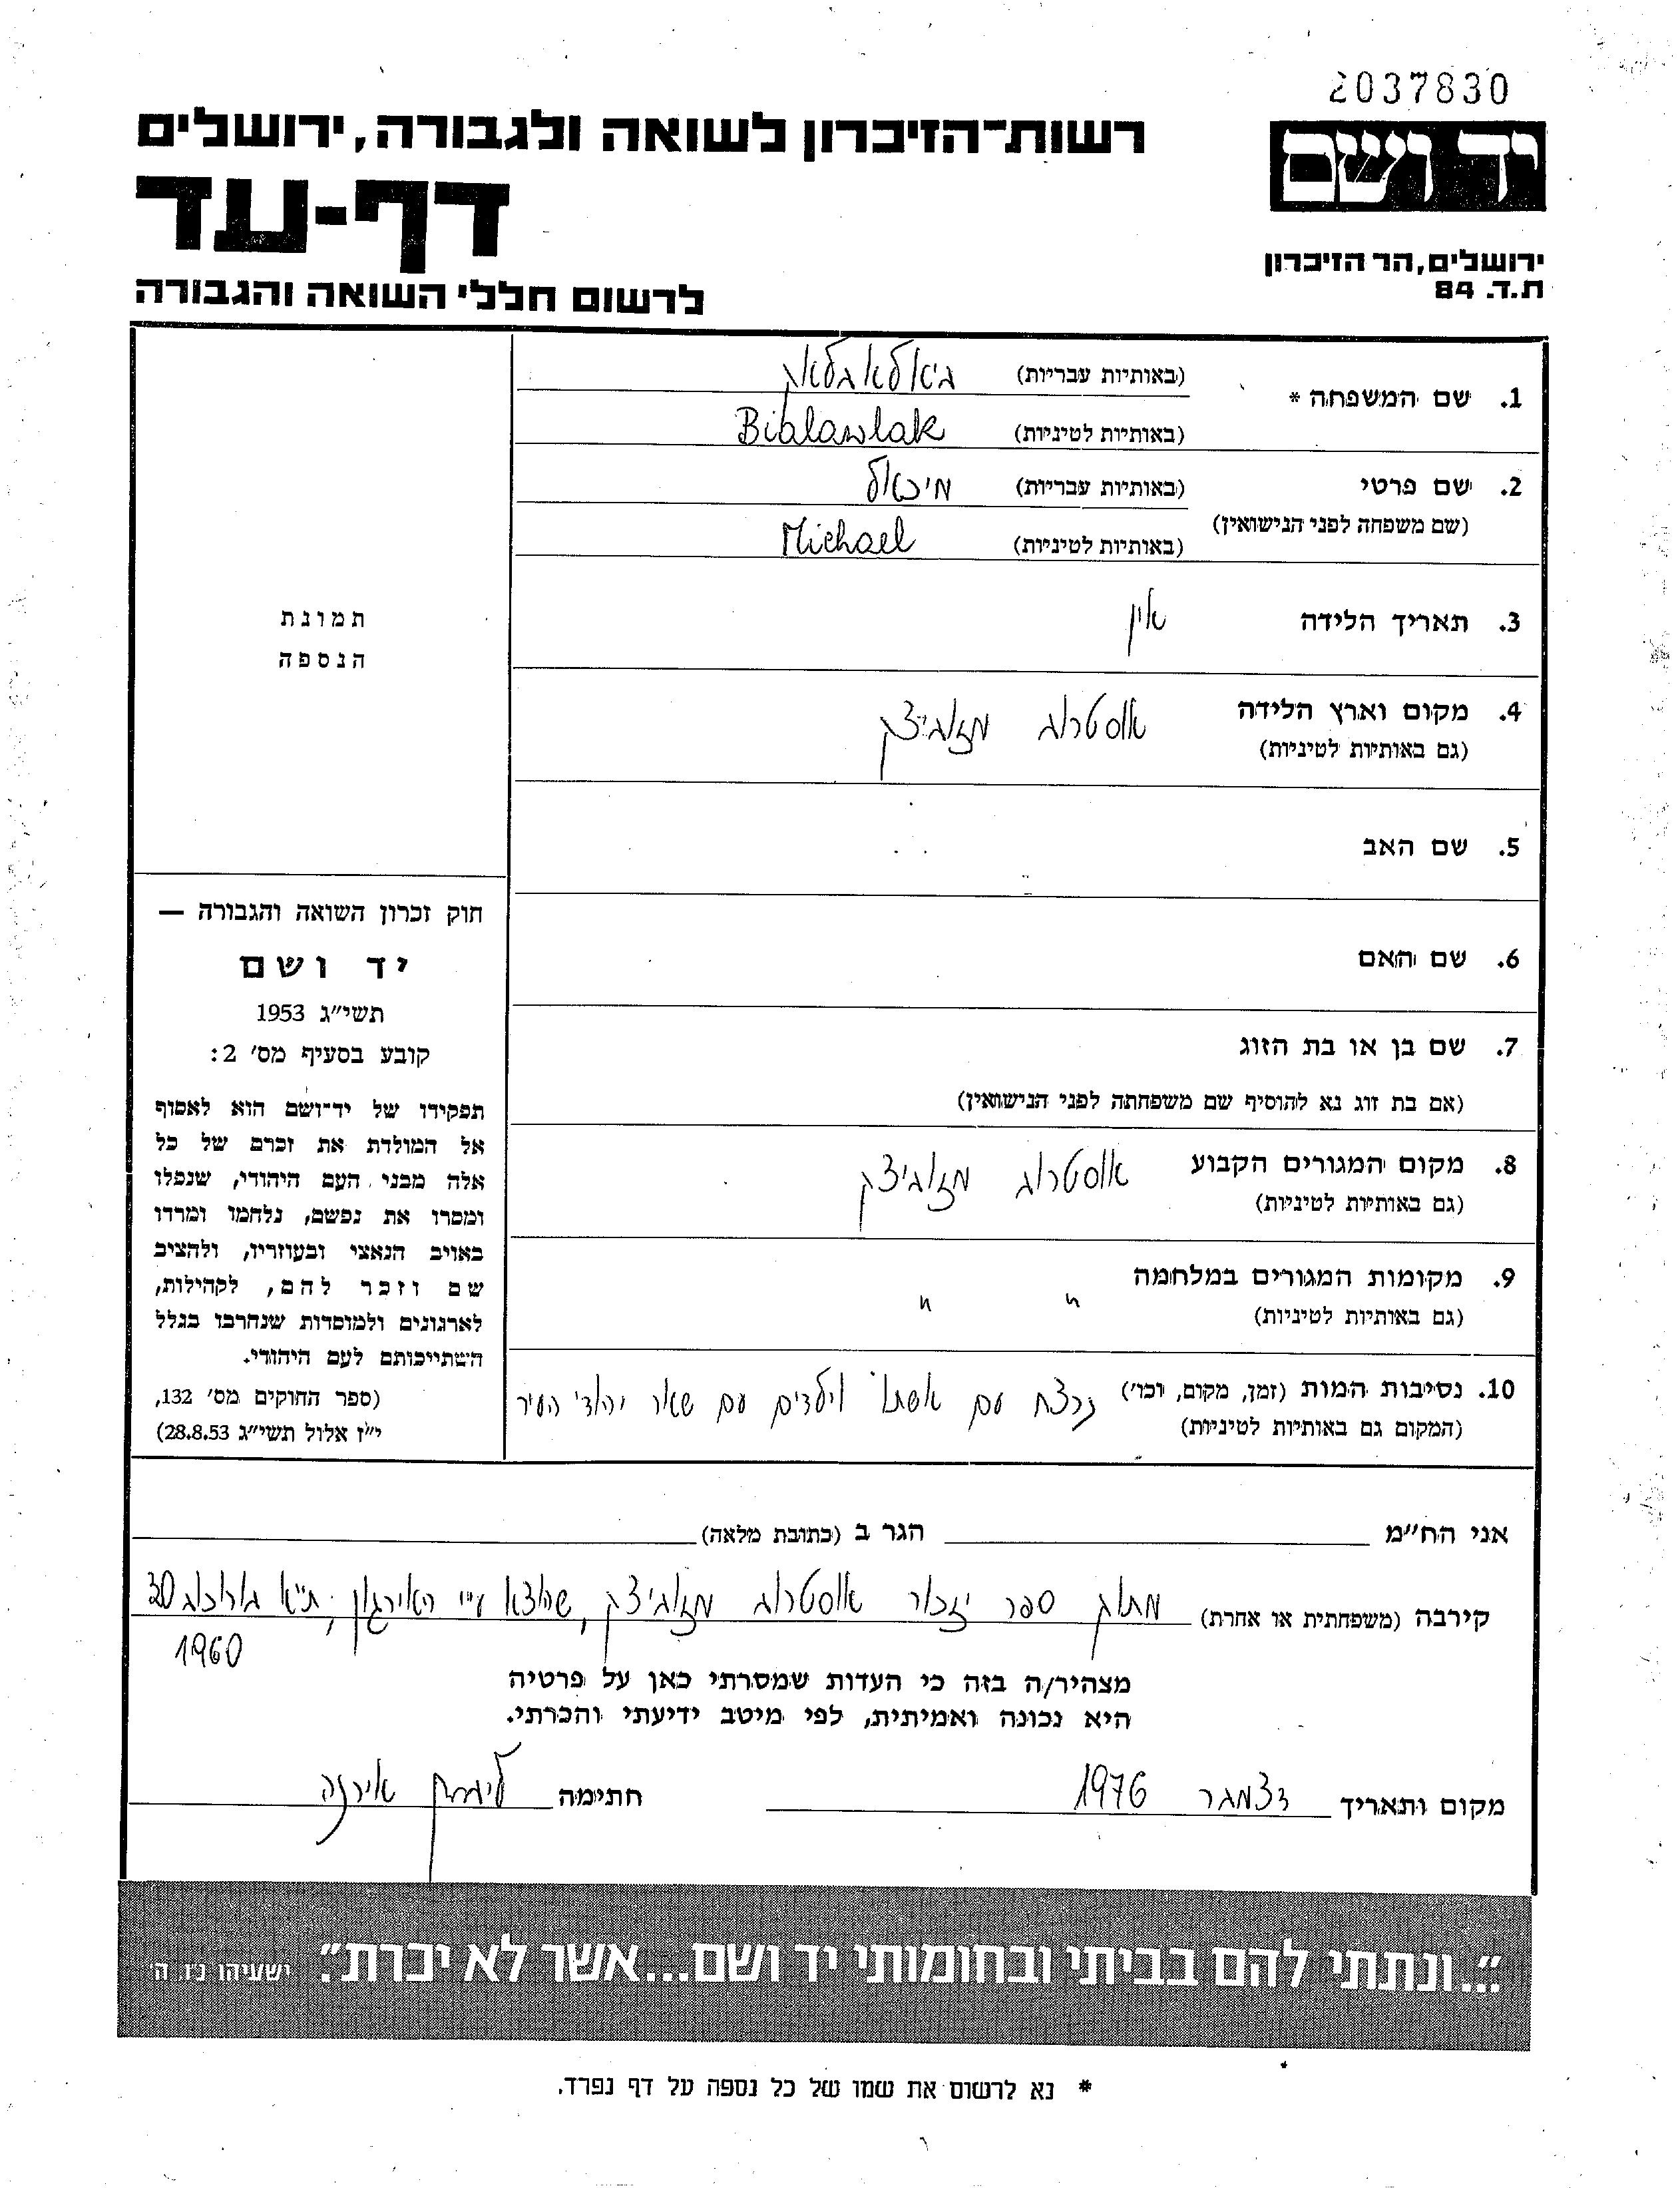 2037830
יד ושם
רשות־הזיכרון לשואה ולגבורה, ירושלים
דף-עד
לרשום חללי השואה והגבורה
ירושלים, הר הזיכרון
ת.ד. 84
1. שם המשפחה * (באותיות עבריות) ביאלאבלאק
(באותיות לטיניות) Bialawlak
2. שם פרטי (באותיות עבריות) מיכאל
(שם משפחה לפני הנישואין) (באותיות לטיניות) Michael
3. תאריך הלידה אין
4. מקום וארץ הלידה אוסטרוב מזוביצק
(גם באותיות לטיניות)
5. שם האב
6. שם האם
7. שם בן או בת הזוג
(אם בת זוג נא להוסיף שם משפחתה לפני הנישואין)
8. מקום המגורים הקבוע אוסטרוב מזוביצק
(גם באותיות לטיניות)
9. מקומות המגורים במלחמה " "
(גם באותיות לטיניות)
10. נסיבות המות (זמן, מקום, וכו') נרצח עם אשתו וילדים עם שאר יהודי העיר
(המקום גם באותיות לטיניות)
תמונת
הנספה
חוק זכרון השואה והגבורה —
יד ושם
תשי"ג 1953
קובע בסעיף מס' 2:
תפקידו של יד־ושם הוא לאסוף
אל המולדת את זכרם של כל
אלה מבני העם היהודי, שנפלו
ומסרו את נפשם, נלחמו ומרדו
באויב הנאצי ובעוזריו, ולהציב
שם וזכר להם, לקהילות,
לארגונים ולמוסדות שנחרבו בגלל
השתייכותם לעם היהודי.
(ספר החוקים מס' 132,
י"ז אלול תשי"ג 28.8.53)
אני הח"מ הגר ב (כתובת מלאה)
קירבה (משפחתית או אחרת) מתוך ספר יזכור אוסטרוב מזוביצק, שהוצא ע"י האירגון, ת"א 30
1960
מצהיר/ה בזה כי העדות שמסרתי כאן על פרטיה
היא נכונה ואמיתית, לפי מיטב ידיעתי והכרתי.
מקום ותאריך דצמבר 1976 חתימה אירנה
"...ונתתי להם בביתי ובחומותי יד ושם...אשר לא יכרת". ישעיהו נ"ו, ה'
* נא לרשום את שמו של כל נספה על דף נפרד.